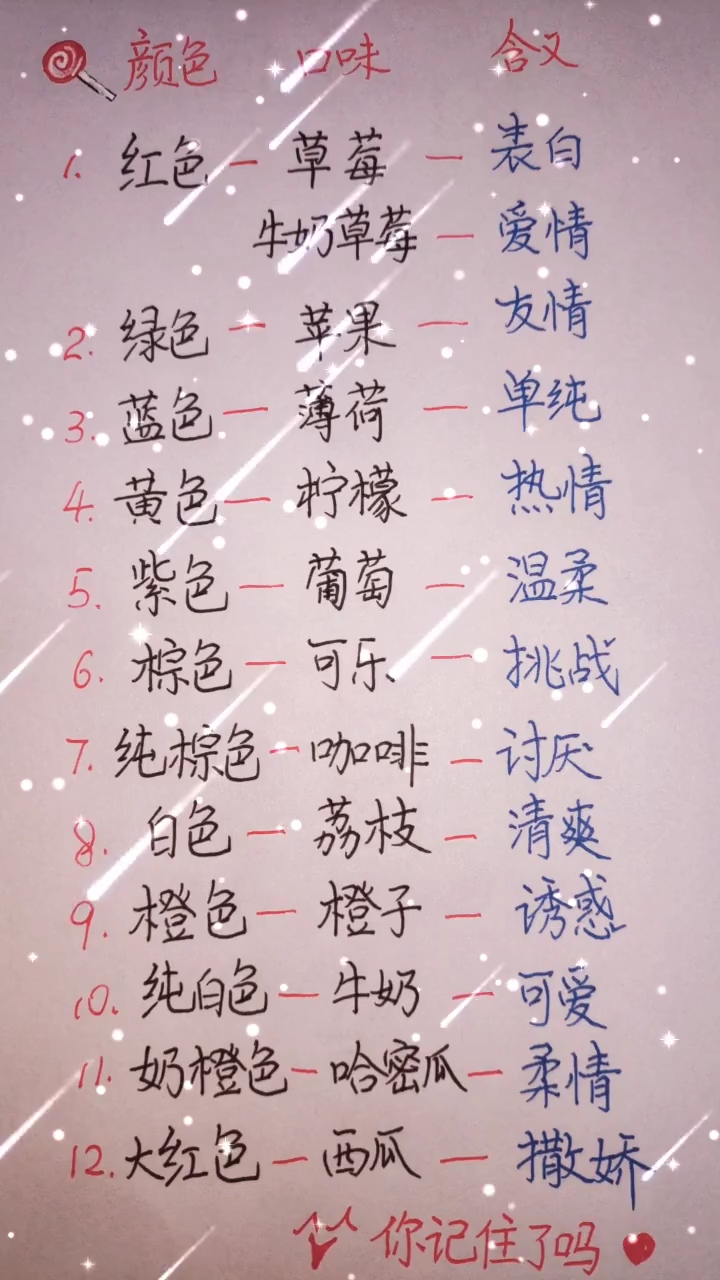 颜色 口味 含义
1. 红色 — 草莓 — 表白
牛奶草莓 — 爱情
2. 绿色 — 苹果 — 友情
3. 蓝色 — 薄荷 — 单纯
4. 黄色 — 柠檬 — 热情
5. 紫色 — 葡萄 — 温柔
6. 棕色 — 可乐 — 挑战
7. 纯棕色 — 咖啡 — 讨厌
8. 白色 — 荔枝 — 清爽
9. 橙色 — 橙子 — 诱惑
10. 纯白色 — 牛奶 — 可爱
11. 奶橙色 — 哈密瓜 — 柔情
12. 大红色 — 西瓜 — 撒娇
你记住了吗